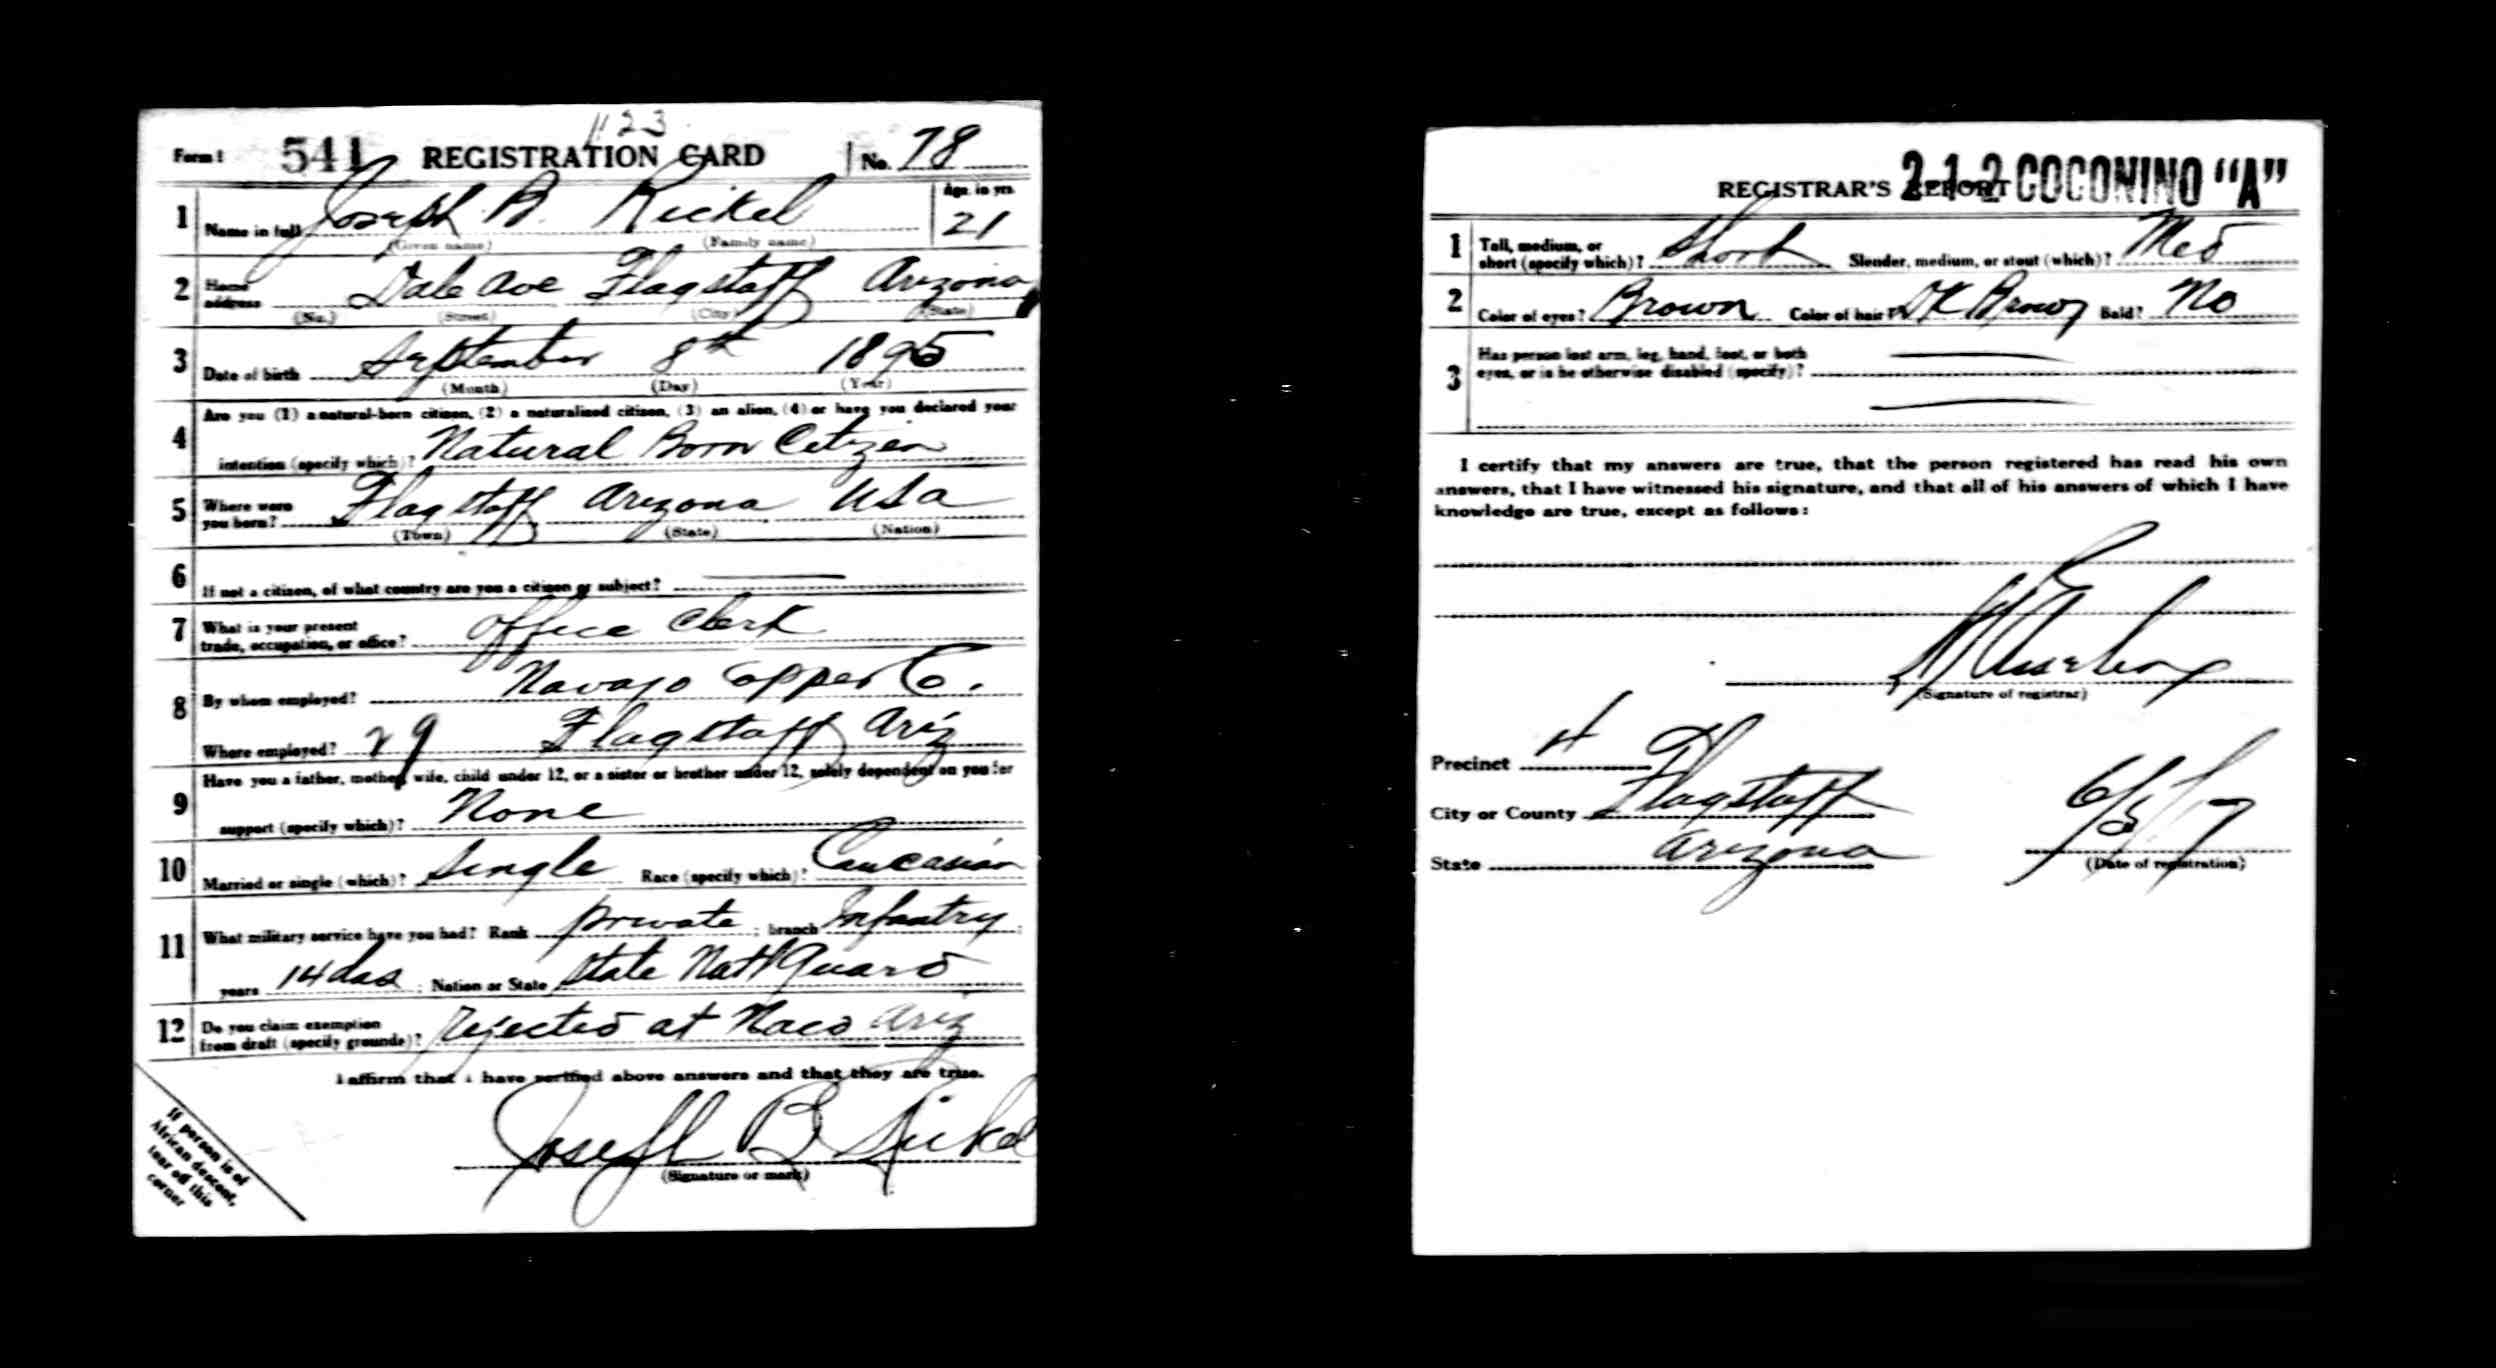 1123
Form 1 541 REGISTRATION CARD No. 78
1 Name in full Joseph B. Rickel Age, in yrs. 21
(Given name) (Family name)
2 Home address Dale Ave Flagstaff Arizona
(No.) (Street) (City) (State)
3 Date of birth September 8th 1895
(Month) (Day) (Year)
4 Are you (1) a natural-born citizen, (2) a naturalized citizen, (3) an alien, (4) or have you declared your
intention (specify which)? Natural Born Citizen
5 Where were you born? Flagstaff Arizona USA
(Town) (State) (Nation)
6 If not a citizen, of what country are you a citizen or subject?
7 What is your present trade, occupation, or office? Office Clerk
8 By whom employed? Navajo Copper Co.
Where employed? 29 Flagstaff Ariz
9 Have you a father, mother, wife, child under 12, or a sister or brother under 12, solely dependent on you for
support (specify which)? None
10 Married or single (which)? Single Race (specify which)? Caucasian
11 What military service have you had? Rank private ; branch Infantry ;
years 14 das ; Nation or State State Natl Guard
12 Do you claim exemption from draft (specify grounds)? Rejected at Naco Ariz
I affirm that I have verified above answers and that they are true.
Joseph B Rickel
(Signature or mark)
If person is of
African descent,
tear off this
corner
REGISTRAR'S REPORT 2-1-2 COCONINO "A"
1 Tall, medium, or short (specify which)? Short Slender, medium, or stout (which)? Med
2 Color of eyes? Brown Color of hair? Dk Brown Bald? No
3 Has person lost arm, leg, hand, foot, or both
eyes, or is he otherwise disabled (specify)?
I certify that my answers are true, that the person registered has read his own
answers, that I have witnessed his signature, and that all of his answers of which I have
knowledge are true, except as follows:
(Signature of registrar)
Precinct 4
City or County Flagstaff
State Arizona
6/5/17
(Date of registration)